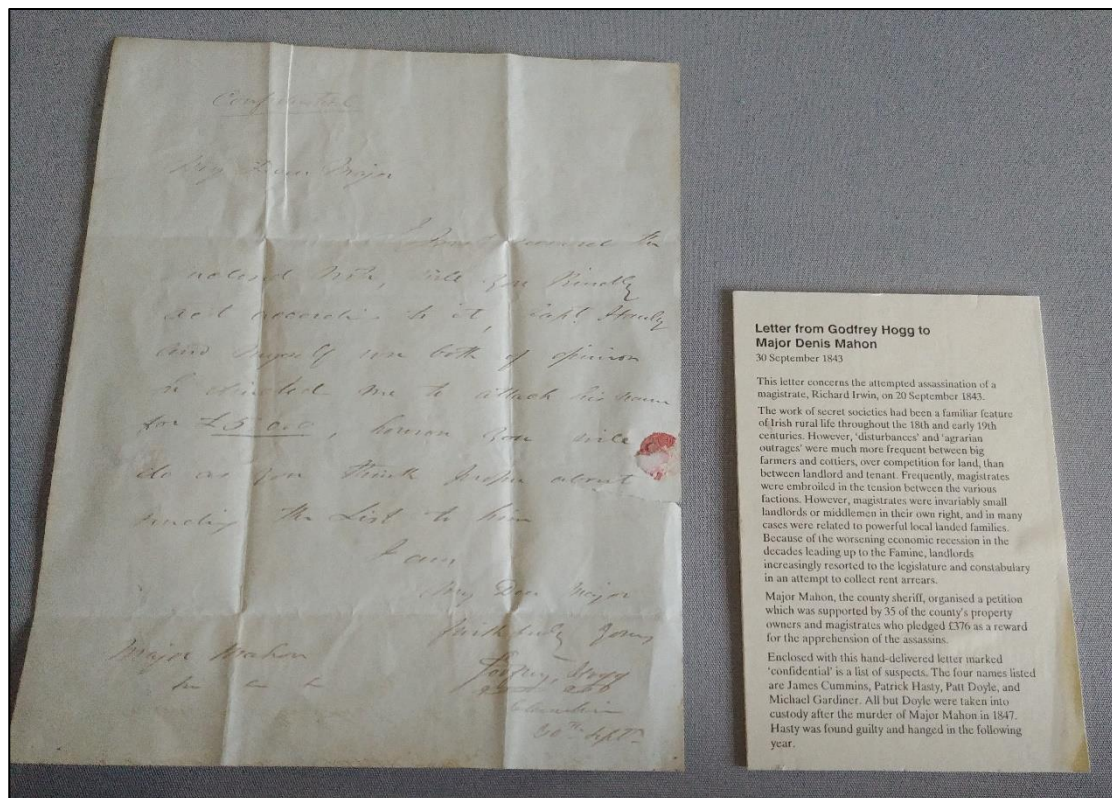 Confidential
My Dear Major
the
enclosed Note, will you Kindly
act according to it, Capt.
and myself are both of opinion
he me to attach his name
for £5.0.0, however you will
do as you think proper about
sending the List to him
I am
My Dear Major
faithfully yours
Major Mahon
Godfrey Hogg
30th Septr
Letter from Godfrey Hogg to
Major Denis Mahon
30 September 1843
This letter concerns the attempted assassination of a
magistrate, Richard Irwin, on 20 September 1843.
The work of secret societies had been a familiar feature
of Irish rural life throughout the 18th and early 19th
centuries. However, ‘disturbances’ and ‘agrarian
outrages’ were much more frequent between big
farmers and cottiers, over competition for land, than
between landlord and tenant. Frequently, magistrates
were embroiled in the tension between the various
factions. However, magistrates were invariably small
landlords or middlemen in their own right, and in many
cases were related to powerful local landed families.
Because of the worsening economic recession in the
decades leading up to the Famine, landlords
increasingly resorted to the legislature and constabulary
in an attempt to collect rent arrears.
Major Mahon, the county sheriff, organised a petition
which was supported by 35 of the county's property
owners and magistrates who pledged £376 as a reward
for the apprehension of the assassins.
Enclosed with this hand-delivered letter marked
‘confidential’ is a list of suspects. The four names listed
are James Cummins, Patrick Hasty, Patt Doyle, and
Michael Gardiner. All but Doyle were taken into
custody after the murder of Major Mahon in 1847.
Hasty was found guilty and hanged in the following
year.